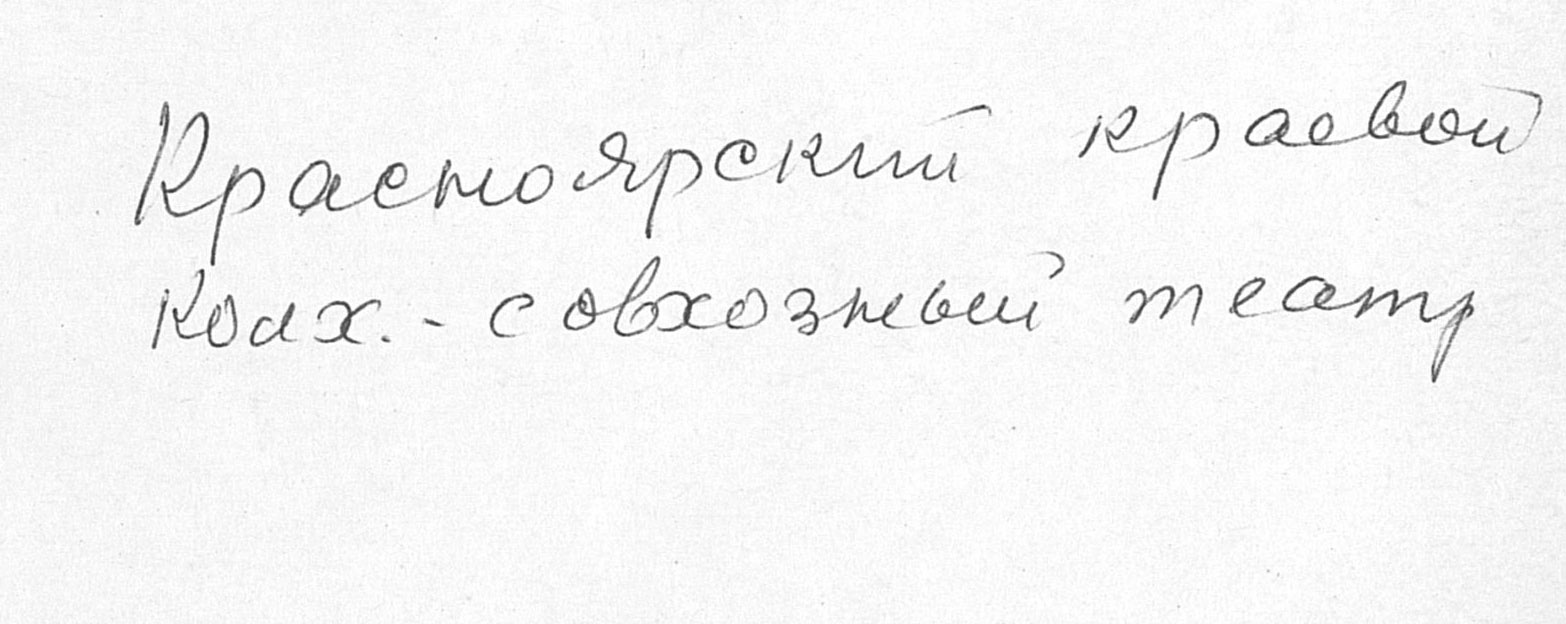 Красноярский краевой
колх.-совхозный театр